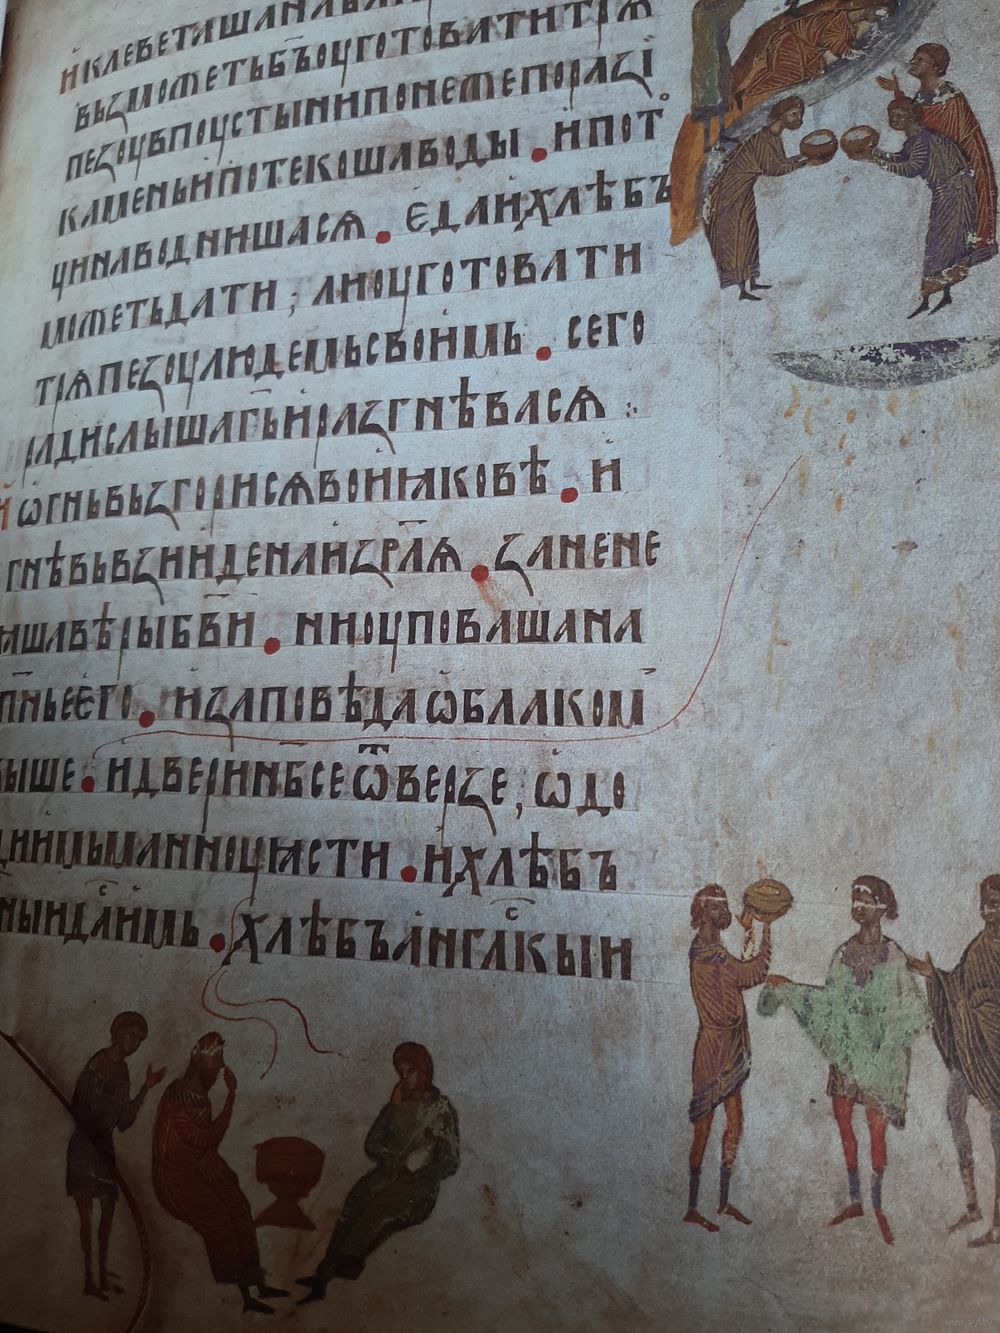 ИКЛЕВЕТАШАНАБА
ВЬЗМОЖЕТЬБЪОУГОТОВАТИТРѦ
ПЕЗОУВПОУСТЫНИПОНЕЖЕПОРАЗІ
КАМЕНЬИПОТЕКОШАВОДЫ . ИПОТ
ЦИНАВОДНИШАСѦ . ЕДАИХЛѢБЪ
МОЖЕТЬДАТИ ; ЛИОУГОТОВАТИ
ТРѦПЕЗОУЛЮДЕМЬСВОИМЬ . СЕГО
РАДИСЛЫШАГЬИРАЗГНѢВАСѦ :
ИѠГНЬВЬЗГОРИСѦВОИꙖКОВѢ . И
ГНѢВЬВЗИИДЕНАИЗРЛѦ . ЗАНЕНЕ
ꙖШАВѢРЫБВИ . НИОУПОВАШАНА
СПНЬЕЕГО . ИЗАПОВѢДАѠБЛАКОМ
ВЫШЕ . ИДВЕРИНБСЕѾВЕРЗЕ , ѠДО
ДИИМЬМАННОУꙖСТИ . ИХЛѢБЪ
НЫИДАИМЬ . ХЛѢБЪАНГЛКЫИ
www.ay.by